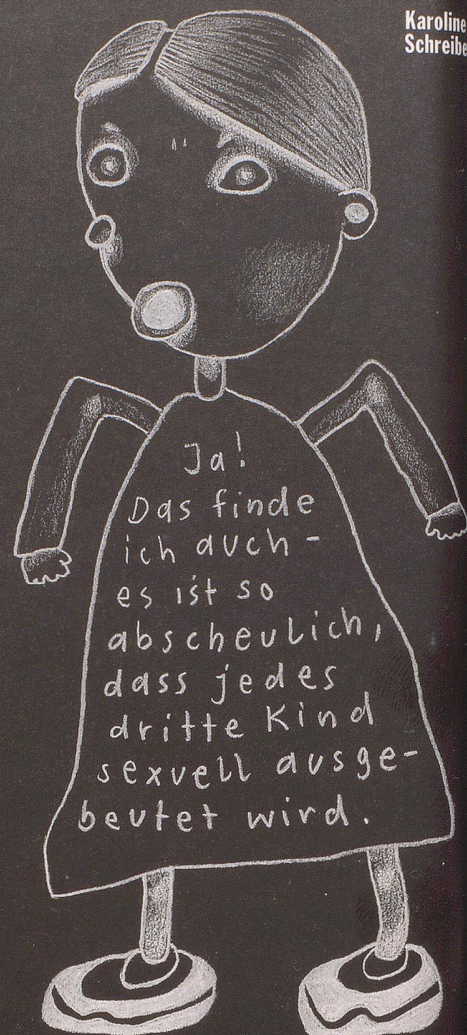 Karoline
Schreibe
Ja!
Das finde
ich auch -
es ist so
abscheulich,
dass jedes
dritte Kind
sexuell ausge-
beutet wird.